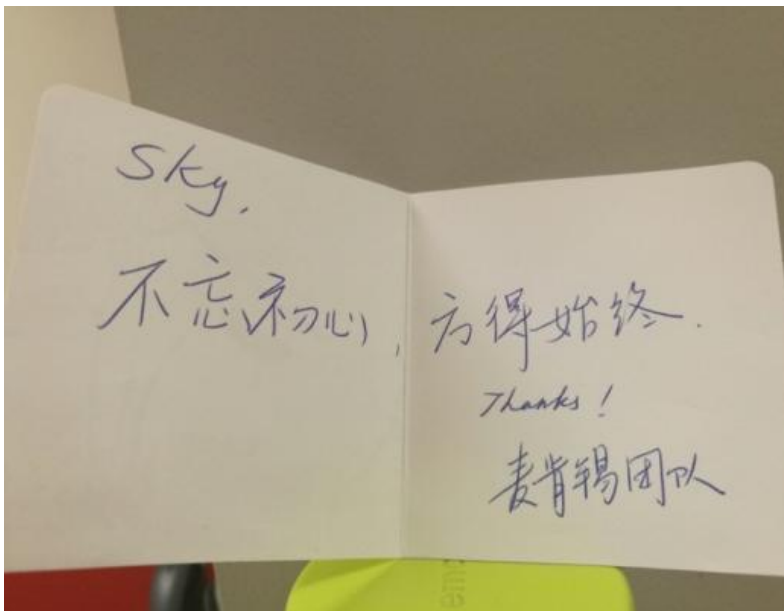 Sky,
不忘初心, 方得始终.
Thanks!
麦肯锡团队